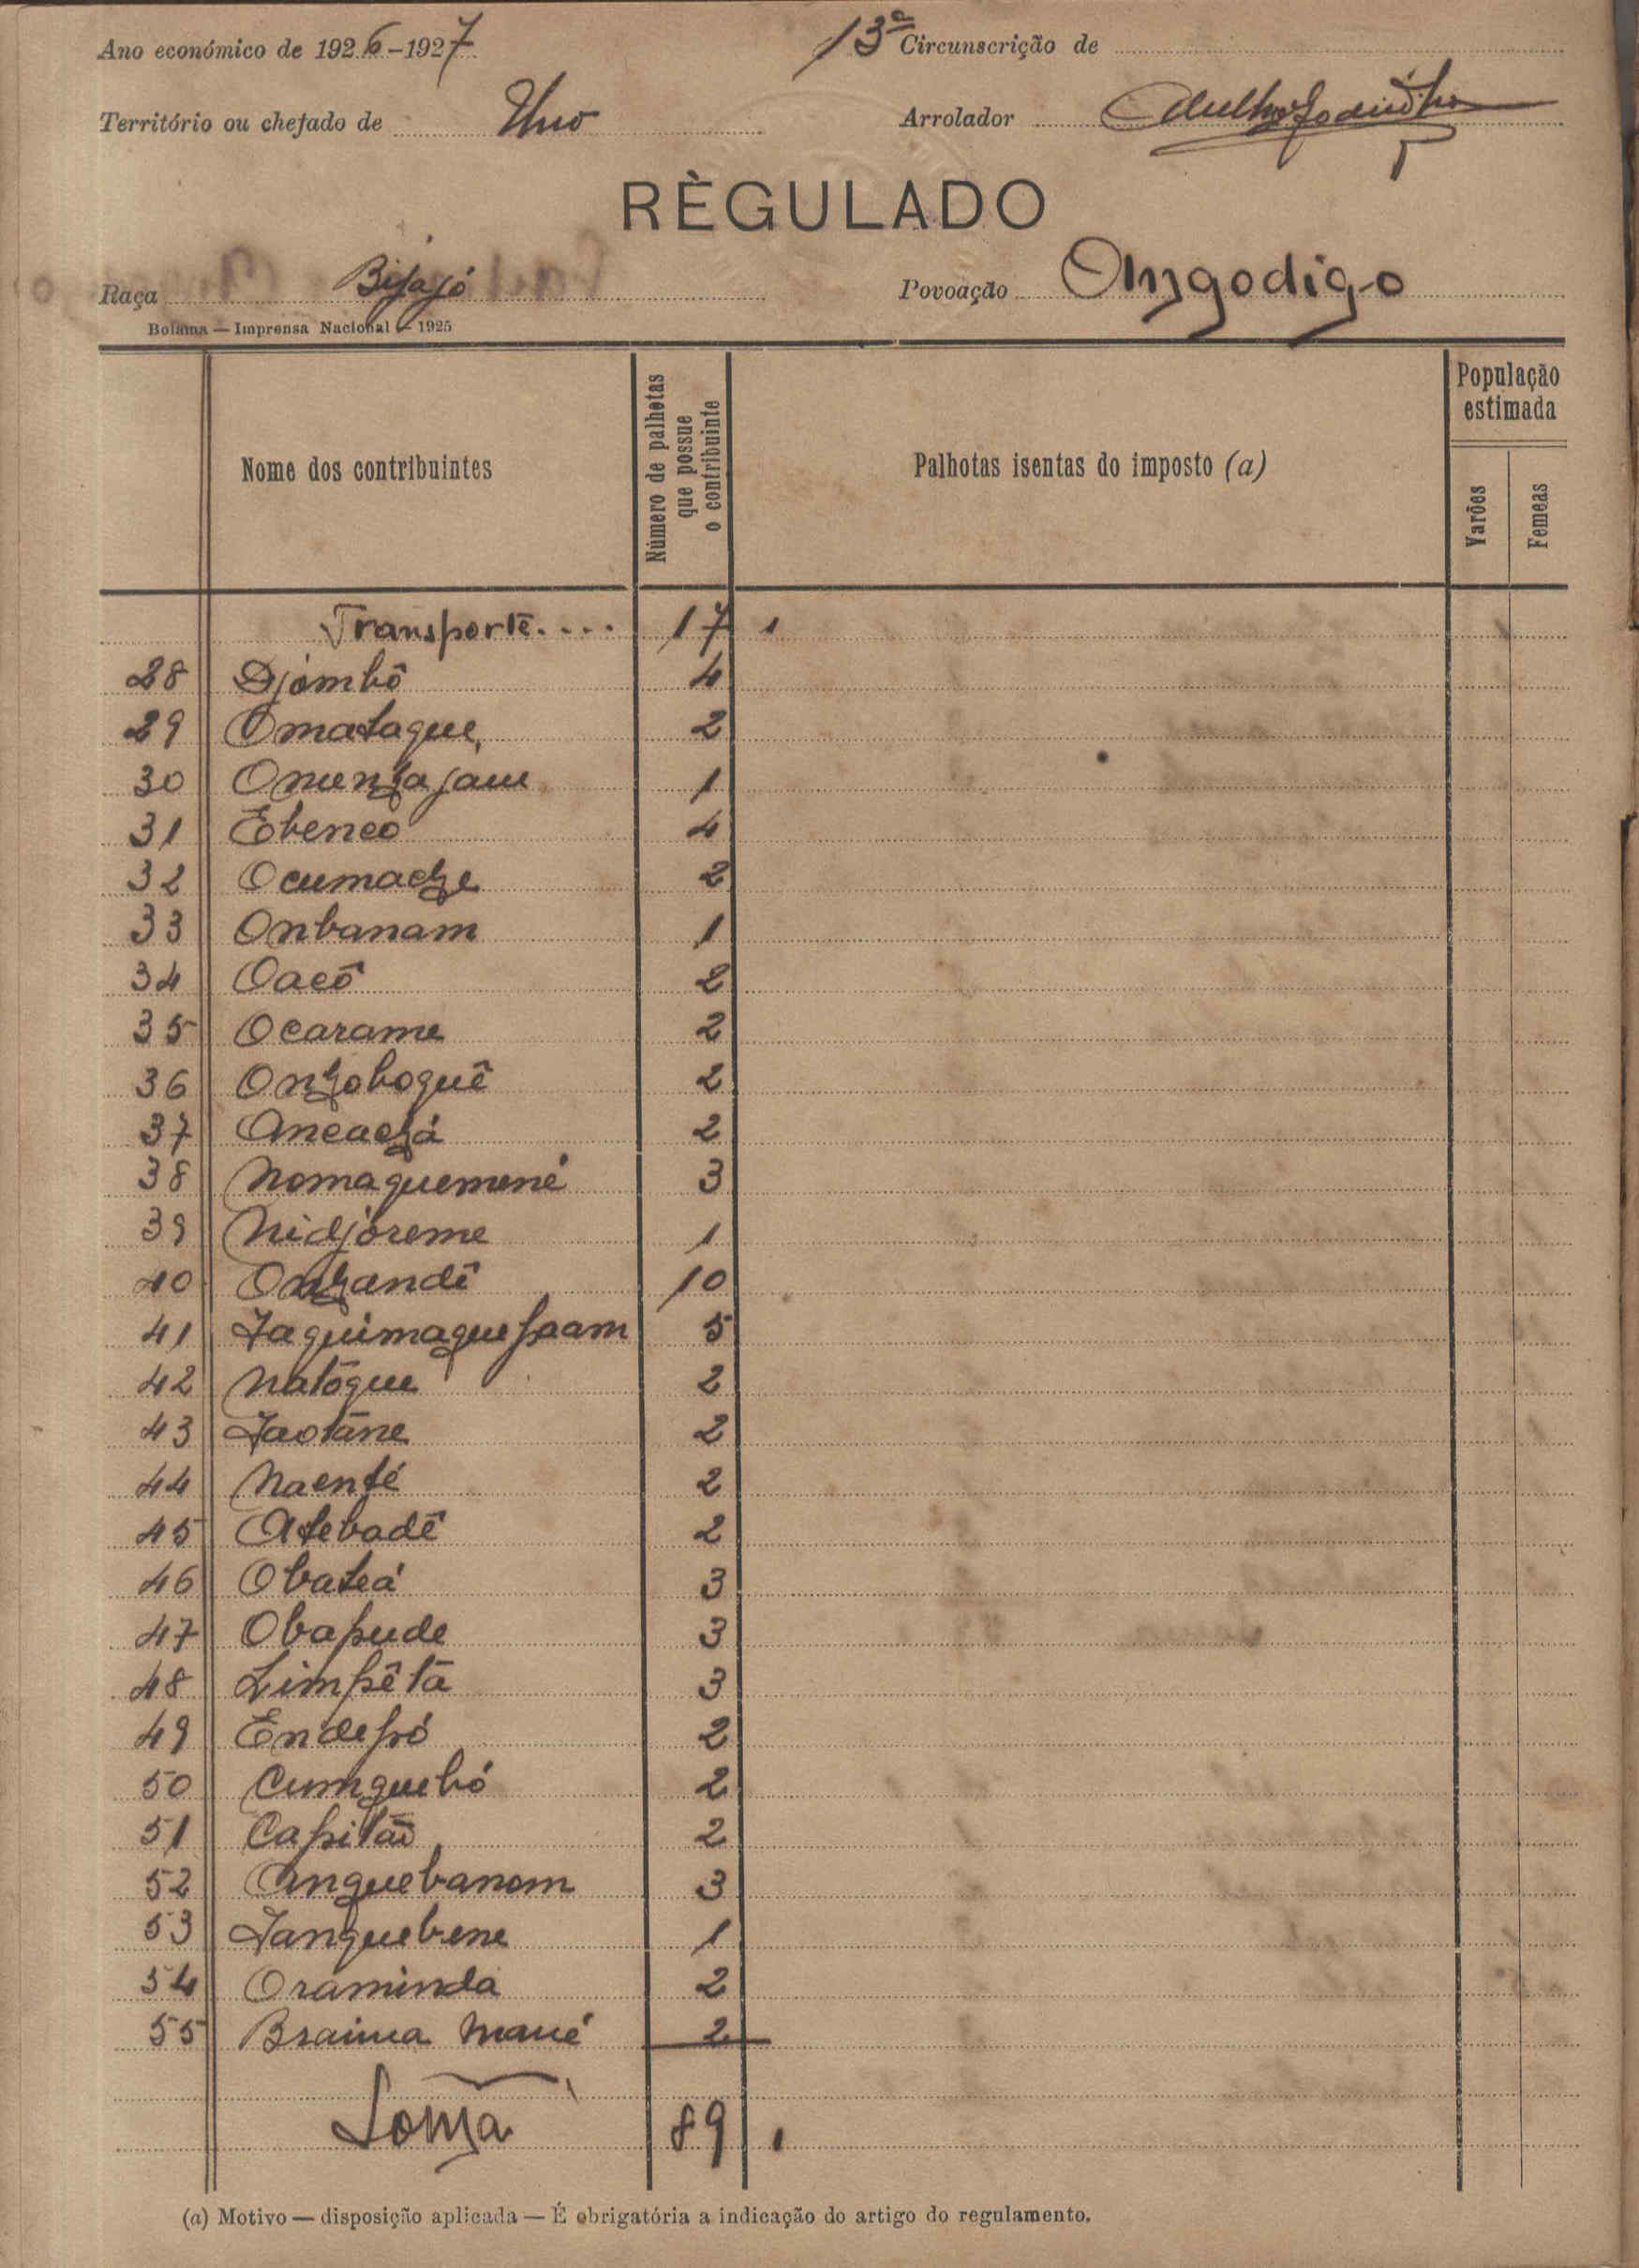 Ano económico de 1926-1927 13ª Circunscrição de
Território ou chefado de Uno Arrolador
RÈGULADO
Raça Bijajó Povoação Angodigo
Bolama — Imprensa Nacional — 1925
Nome dos contribuintes
Número de palhotas que possue o contribuinte
Palhotas isentas do imposto (a)
População estimada
Varões
Femeas
Transporte.... 17
28 Djombô 4
29 Omatague 2
30 1
31 Ebeneo 4
32 2
33 Onbanam 1
34 Oacô 2
35 Ocarame 2
36 Onzoboguê 2
37 2
38 Nomaquemené 3
39 Nidjoreme 1
40 10
41 Jaquimaquepaam 5
42 Natôgue 2
43 Jaotane 2
44 Naenté 2
45 Atebadê 2
46 Obateá 3
47 Obapude 3
48 Limpêta 3
49 Endepó 2
50 Cumguebó 2
51 Capitão 2
52 Anguebanom 3
53 Janguebene 1
54 Oraminda 2
55 Braima Mané 2
Soma 89
(a) Motivo — disposição aplicada — É obrigatória a indicação do artigo do regulamento.